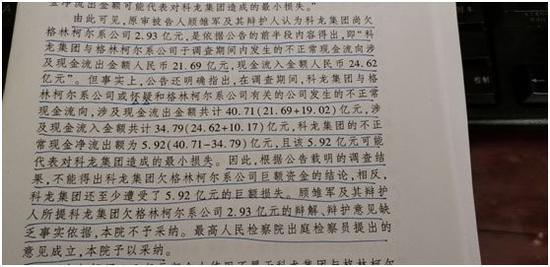 金净流出金额可能代表对科龙集团造成的最小损失。”
由此可见,原审被告人顾雏军及其辩护人认为科龙集团尚欠
格林柯尔系公司2.93亿元,是依据公告的前半段内容得出,即“科
龙集团与格林柯尔系公司于调查期间内发生的不正常现金流向涉
及现金流出金额人民币21.69亿元,现金流入金额人民币24.62
亿元”。但事实上,公告还明确指出,在调查期间,科龙集团与格
林柯尔系公司或怀疑和格林柯尔系公司有关的公司发生的不正常
现金流向,涉及现金流出金额共计40.71(21.69+19.02)亿元,涉
及现金流入金额共计34.79(24.62+10.17)亿元,科龙集团的不正
常现金净流出额为5.92(40.71-34.79)亿元,且该5.92亿元可能
代表对科龙集团造成的最小损失。因此,根据公告载明的调查结
果,不能得出科龙集团欠格林柯尔系公司巨额资金的结论,相反,
科龙集团还至少遭受了5.92亿元的巨额损失。顾雏军及其辩护
人所提科龙集团欠格林柯尔系公司2.93亿元的辩解、辩护意见缺
乏事实依据,本院不予采纳。最高人民检察院出庭检察员提出的
意见成立,本院予以采纳。